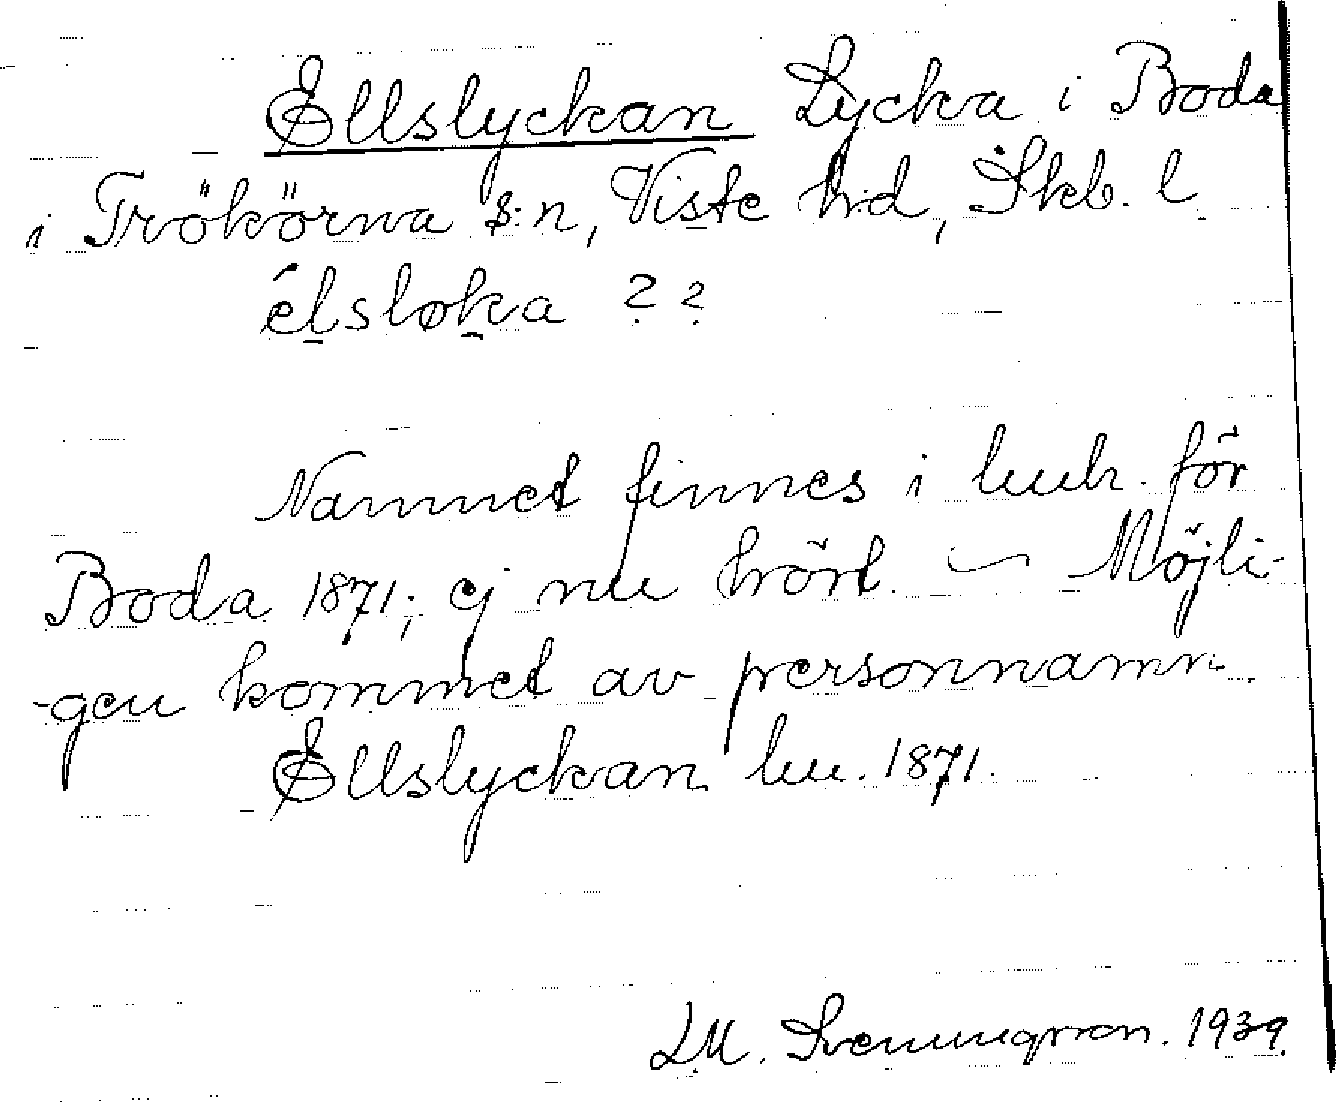 Ellslyckan Lycka i Boda
i Trökörna s:n, Viste hd, Skb. l
élsløka ? ?
Namnet finnes i luh. för
Boda 1871; ej nu hört. — Möjli-
-gen kommet av personnamn.
Ellslyckan lu. 1871.
LM. Svenungsson. 1939.